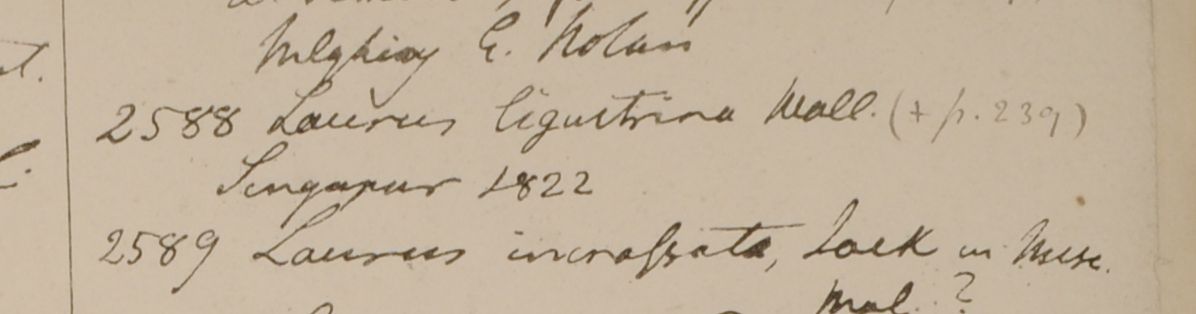 E. Nolan
2588 Laurus ligustrina Wall. (+ p. 239)
Singapur 1822
2589 Laurus incrassata, Jack in Misc.
Mal. ?